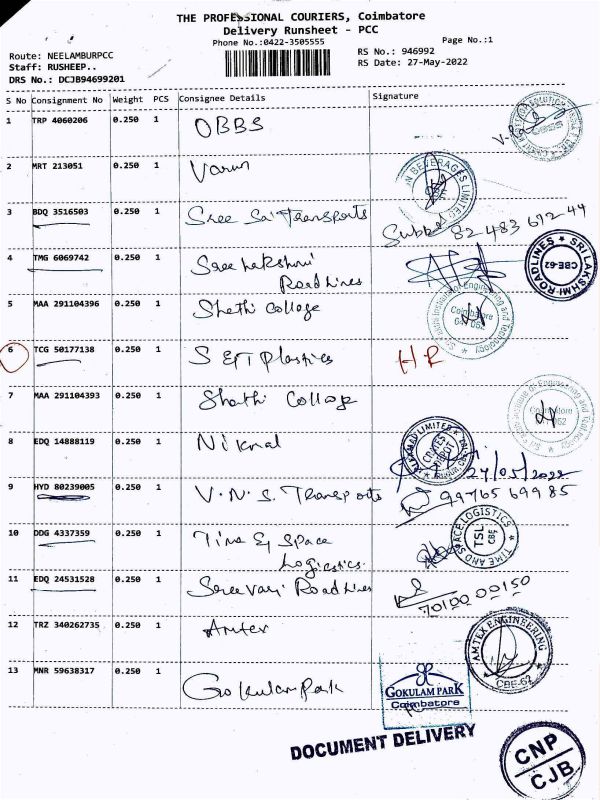 THE PROFESSIONAL COURIERS, Coimbatore
Delivery Runsheet - PCC
Phone No.:0422-3505555
Page No.:1
Route: NEELAMBURPCC
RS No.: 946992
Staff: RUSHEEP..
RS Date: 27-May-2022
DRS No.: DCJB94699201
S No Consignment No Weight PCS Consignee Details Signature
1 TRP 4060206 0.250 1 OBBS
2 MRT 213051 0.250 1 Varun
BEVERAGES LIMITED
3 BDQ 3516503 0.250 1 Sree Sai Transports
82 483 692 44
4 TMG 6069742 0.250 1 Sree Lakshmi
Roadlines
SRI LAKSHMI ROADLINES
CBE-62
5 MAA 291104396 0.250 1 Shathi College
Coimbatore
641 062
6 TCG 50177138 0.250 1 S ET Plastics HR
7 MAA 291104393 0.250 1 Shathi College
Engineering and Technology
Coimbatore
8 EDQ 14888119 0.250 1 Nikmal
LIMITED
27/05/2022
9 HYD 80239005 0.250 1 V.N.S. Transports 99765 69985
10 DDG 4337359 0.250 1 Time & Space
Logistics
TIME AND SPACE LOGISTICS
TSL
CBE
11 EDQ 24531528 0.250 1 Sree Vari Roadlines
70100 00150
12 TRZ 340262735 0.250 1 Amtex
AMTEX ENGINEERING
CBE-62
13 MNR 59638317 0.250 1 Gokulam Park
GOKULAM PARK
Coimbatore
DOCUMENT DELIVERY
CNP
CJB